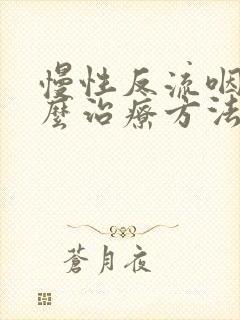 慢性反流咽
麼治療方法
蒼月夜